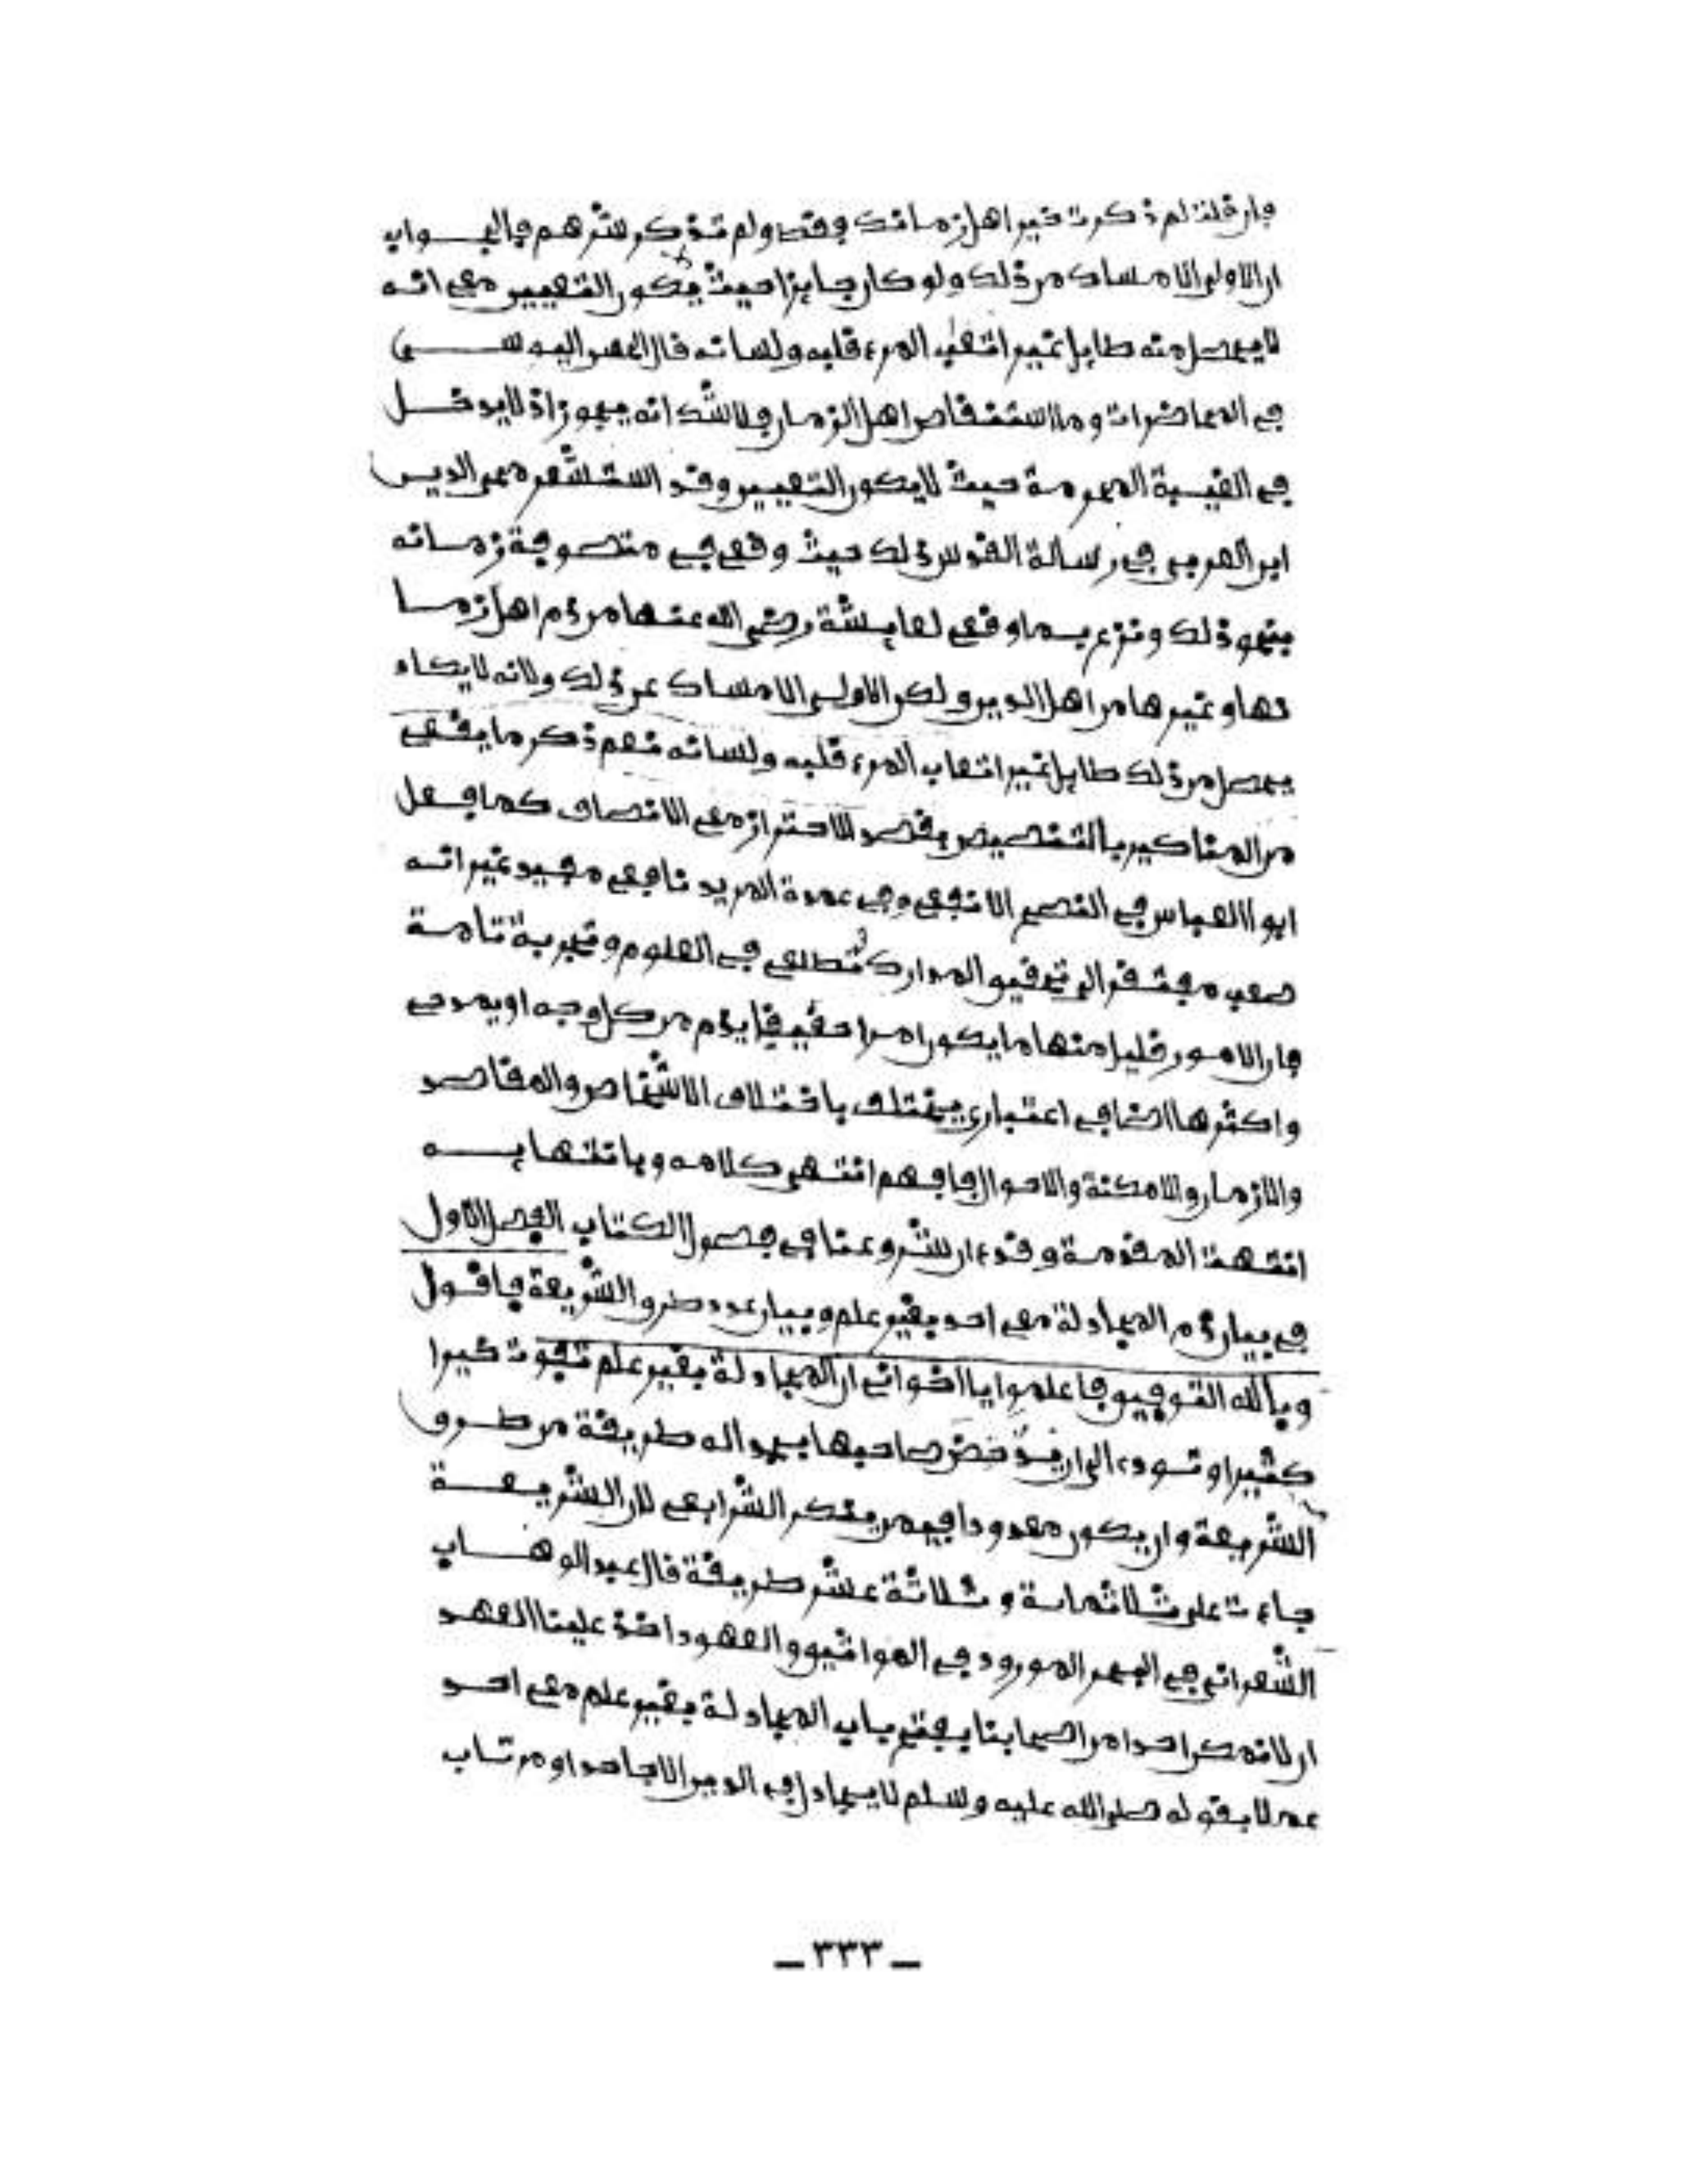 فإن قلت لم ذكرت خير أهل زمانك فقط ولم تذكر شرهم فالجواب
أن الأولى الإمساك من ذلك ولو كان جايزا حيث لا يكون التعيين مع أنه
لا يحصل منه طايل غير اتعب المرء قلبه ولسانه قال الحسن اليوسي
في المحاضرات وما استنقاص أهل الزمان فلا شك أنه يجوز إذ لا يدخل
في الغيبة المحرمة حيث لا يكون التعيين وقد استشعر محي الدين
ابن العربي في رسالة القدس ذلك حيث وقع في متصوفة زمانه
بنحو ذلك ونزع بما وقع لعايشة رضي الله عنها من ذم أهل زما
نها وغيرها من أهل الدين ولكن الأولى الإمساك عن ذلك ولأنه لا يكاد
يحصل من ذلك طايل غير اتعاب المرء قلبه ولسانه نعم ذكر ما يقع
من المناكير بالتنصيص بقصد الاحتراز مع الانصاف كما فعل
أبو العباس في النصح الأنفع وفي عمدة المريد نافع مفيد غير أنه
صعب مفتقر إلى تحقيق المدارك وتطلع في العلوم وتجربة تامة
فإن الأمور قليل منها ما يكون أمرا حقيقيا يذم من كل وجه أو يمدح
وأكثرها إضافي اعتباري يختلف باختلاف الأشخاص والمقاصد
والأزمان والأمكنة والأحوال فافهم انتهى كلامه وبانتهايه
انتهت المقدمة وقد ءان شروعنا في فصول الكتاب الفصل الأول
في بيان ذم المجادلة مع أحد بغير علم وبيان عدد طرق الشريعة فأقول
وبالله التوفيق فاعلموا يا إخواني أن المجادلة بغير علم تفوت خيرا
كثيرا وتودي إلى أن يدحض صاحبها بجداله طريقة من طرق
الشريعة وان يكون معدودا فيمن ينكر الشرايع لأن الشريعة
جاءت على ثلاثماية وثلاثة عشر طريقة قال عبد الوهاب
الشعراني في البحر المورود في المواثيق والعهود أخذ علينا العهد
أن لا نمكن أحدا من أصحابنا يفتح باب المجادلة بغير علم مع أحد
عملا بقوله صلى الله عليه وسلم لا يجادل في الدين إلا جاحد أو مرتاب
ـ ٣٣٣ ـ